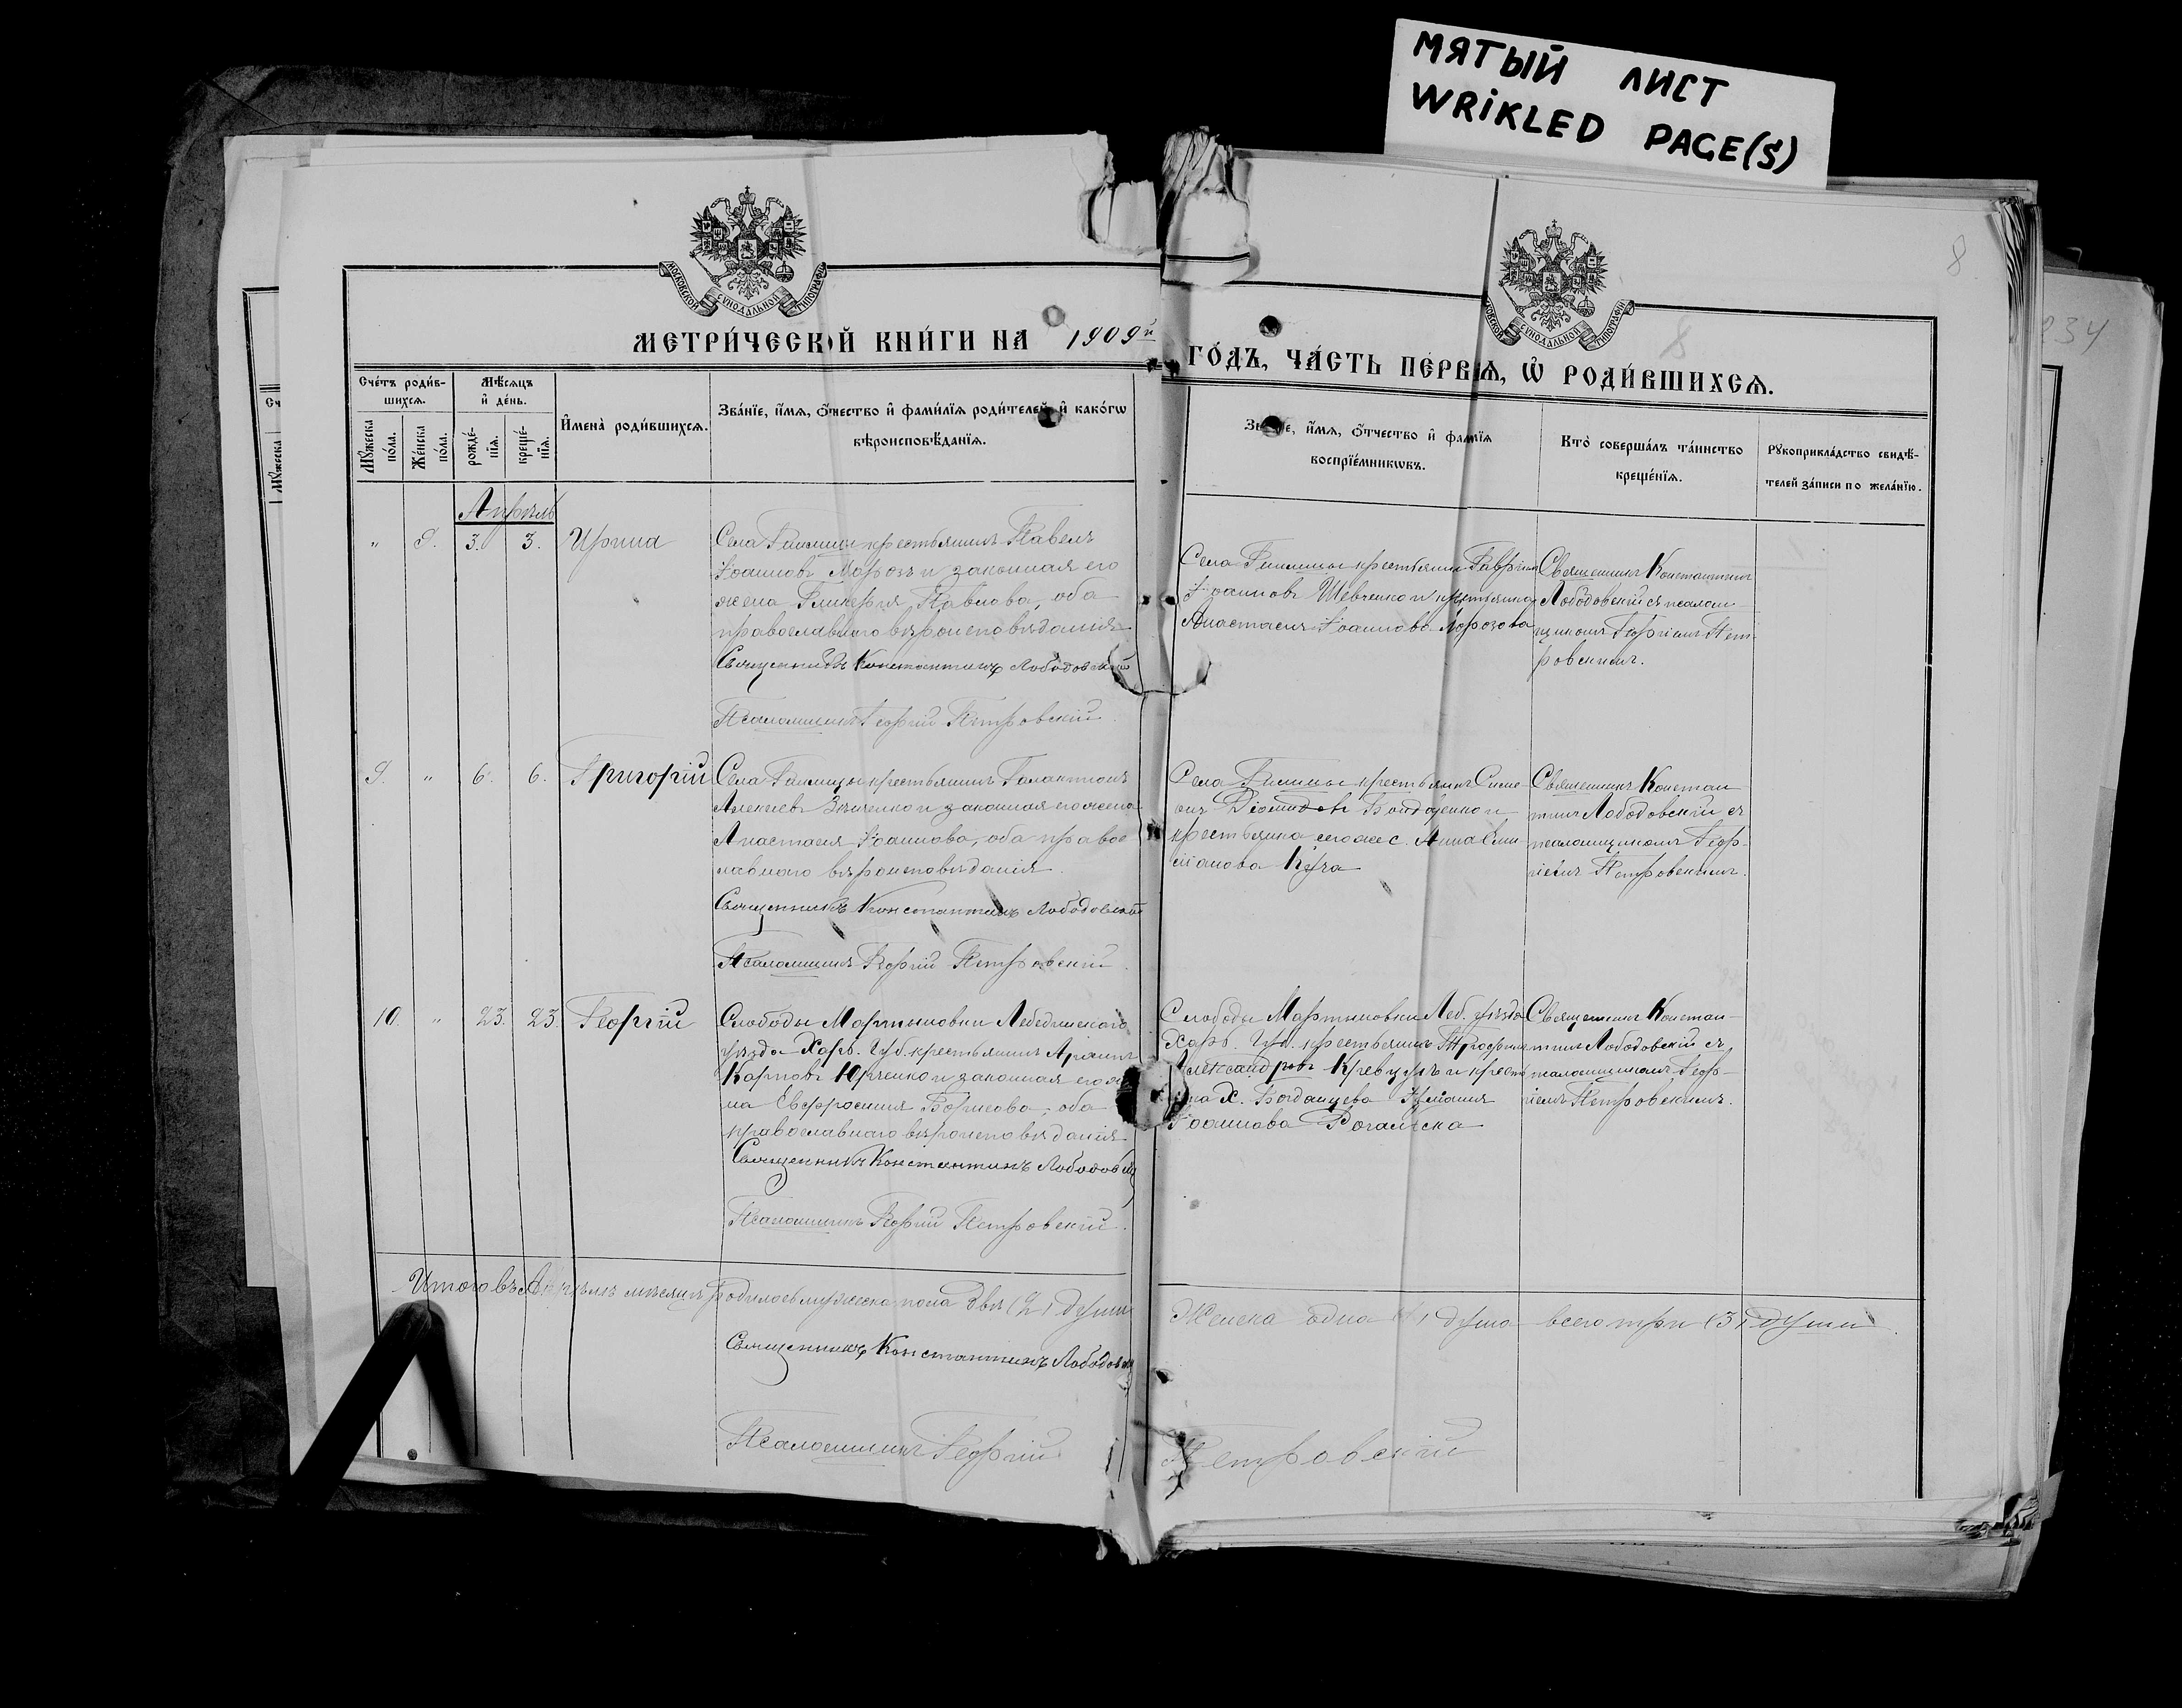 МЯТЫЙ ЛИСТ
WRIKLED PAGE(S)
8
234
МОСКОВСКОЙ СѴНОДАЛЬНОЙ ТИПОГРАФІИ
МОСКОВСКОЙ СѴНОДАЛЬНОЙ ТИПОГРАФІИ
8
МЕТРИ́ЧЕСКОЙ КНИ́ГИ НА 1909й
ГО́ДЪ, ЧА́СТЬ ПЕ́РВАЯ, Ѡ҆ РОДИ́ВШИХСѦ.
Сче́тъ роди́в-
шихсѧ.
Мѣ́сѧцъ
и҆ де́нь.
Мꙋ́жеска по́ла.
Же́нска по́ла.
рожде́-нїѧ.
креще́-нїѧ.
И҆мена̀ роди́вшихсѧ.
Зва́нїе, и҆́мѧ, о҆́тчество и҆ фами́лїѧ роди́телей, и҆ како́гѡ
вѣроисповѣ́данїѧ.
Зва́нїе, и҆́мѧ, о҆́тчество и҆ фами́лїѧ
воспрїе́мникѡвъ.
Кто̀ соверша́лъ та́инство
креще́нїѧ.
Рꙋкоприкла́дство свидѣ́-
телей за́писи по жела́нїю.
Апрѣль
" 9. 3. 3. Ирина
Села крестьянинъ Павелъ
Іоанновъ Морозъ и законная его
жена Гликерія Павлова, оба
православнаго вѣроисповѣданія
Священникъ Константинъ Лободовскій
Псаломщикъ Георгій Петровскій.
Села крестьянинъ Гавріилъ
Іоанновъ Шевченко и крестьянка
Анастасія Іоаннова Морозова
Священникъ Константинъ
Лободовскій съ псалом-
щикомъ Георгіемъ Пет-
ровскимъ.
9. " 6. 6. Григорій
Села крестьянинъ Галактіонъ
Алексѣевъ и законная его жена
Анастасія Іоаннова, оба правос
лавнаго вѣроисповѣданія.
Священникъ Константинъ Лободовскій
Псаломщикъ Георгій Петровскій.
Села крестьянинъ Симе
онъ Діомидовъ и
крестьянка того же с. Анна
Священникъ Констан
тинъ Лободовскій съ
псаломщикомъ Геор-
гіемъ Петровскимъ.
10. " 23. 23. Георгій
Слободы Мартыновки Лебединскаго
уѣзда Харь. Губ. крестьянинъ
Карповъ Юрченко и законная его же
на Евфросинія Борисова, оба
православнаго вѣроисповѣданія
Священникъ Константинъ Лободовскій
Псаломщикъ Георгій Петровскій.
Слободы Мартыновки Леб. уѣзда
Харь. Губ. крестьянинъ Трофимъ
Александровъ и крестъ
х. Богданцева
Іоаннова
Священникъ Констан-
тинъ Лободовскій съ
псаломщикомъ Геор-
гіемъ Петровскимъ.
Итого въ Апрѣлѣ мѣсяцѣ родилось мужеска пола двѣ (2) души
Женска одна (1) душа всего три (3) души.
Священникъ Константинъ Лободовскій
Псаломщикъ Георгій
Петровскій